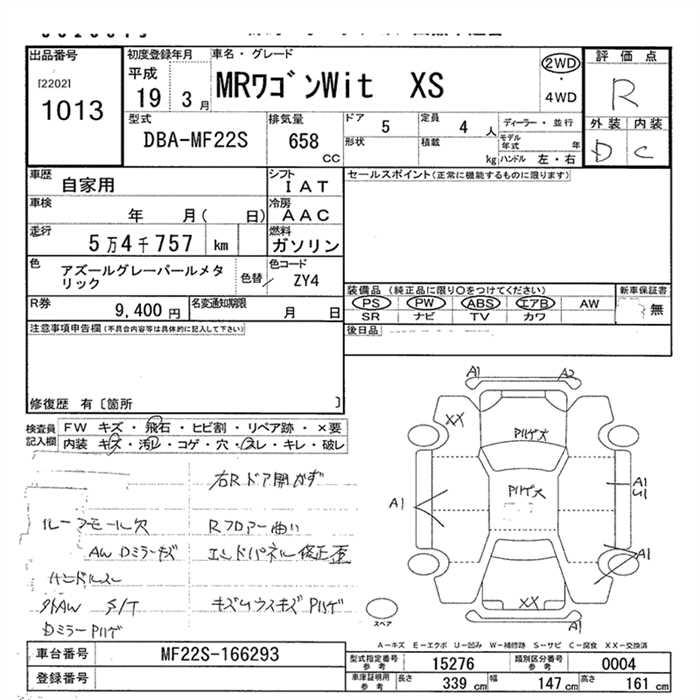 出品番号
[2202]
1013
初度登録年月
平成
19 3月
車名・グレード
MRワゴンWit XS
2WD
・
4WD
評価点
R
外装 内装
D C
型式
DBA-MF22S
排気量
658
CC
ドア 5
定員 4 人
形状
積載 kg
ディーラー・並行
モデル年式 年
ハンドル 左・右
車歴
自家用
シフト
IAT
セールスポイント(正常に機能するものに限ります)
車検
年 月( 日)
冷房
AAC
走行
5万4千757 km
燃料
ガソリン
色
アズールグレーパールメタリック
色替/
色コード
ZY4
装備品 (純正品に限り〇をつけてください)
PS PW ABS エアB AW
SR ナビ TV カワ
新車保証書
無
R券
9,400 円
名変通知期限
月 日
後日品
注意事項申告欄(不具合内容等は具体的に記入して下さい)
修復歴 有〔箇所 〕
検査員記入欄
FW キズ・飛石・ヒビ割・リペア跡・×要
内装 キズ・汚レ・コゲ・穴・スレ・キレ・破レ
右Rドア開かず
ルーフモール欠
Rフロアー曲り
AW Dミラーキズ
エンドパネル修正歪
ハンドルスレ
外AW S/T
キズ ハゲ
Dミラーハゲ
A1 A2
XX
ハゲ大
ハゲ大
A1
A1
U1
A1
XX
A1
スペア
A-キズ E-エクボ U-凹み W-補修跡 S-サビ C-腐食 XX-交換済
車台番号
MF22S-166293
登録番号
型式指定番号 参考
15276
類別区分番号 参考
0004
車庫証明用 参考
長さ 339 cm
幅 147 cm
高さ 161 cm